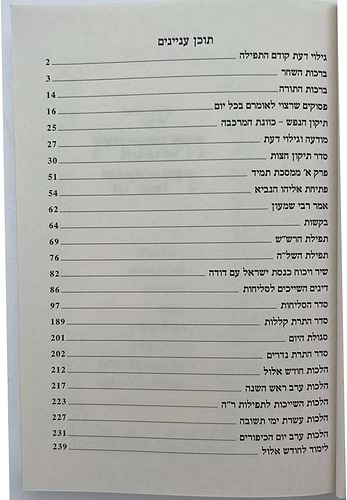 תוכן עניינים
גילוי דעת קודם התפילה 2
ברכות השחר 3
ברכות התורה 14
פסוקים שרצוי לאומרם בכל יום 16
תיקון הנפש – כוונת המרכבה 25
מודעה וגילוי דעת 27
סדר תיקון חצות 30
פרק א' ממסכת תמיד 51
פתיחת אליהו הנביא 54
אמר רבי שמעון 62
בקשות 64
תפילת הרש"ש 69
תפילת השל"ה 76
שיר ויכוח כנסת ישראל עם דודה 82
דינים השייכים לסליחות 86
סדר הסליחות 97
סדר התרת קללות 189
סגולת היום 201
סדר התרת נדרים 202
הלכות חודש אלול 212
הלכות ערב ראש השנה 217
הלכות השייכות לתפילות ר"ה 223
הלכות עשרת ימי תשובה 227
הלכות ערב יום הכיפורים 231
לימוד לחודש אלול 239